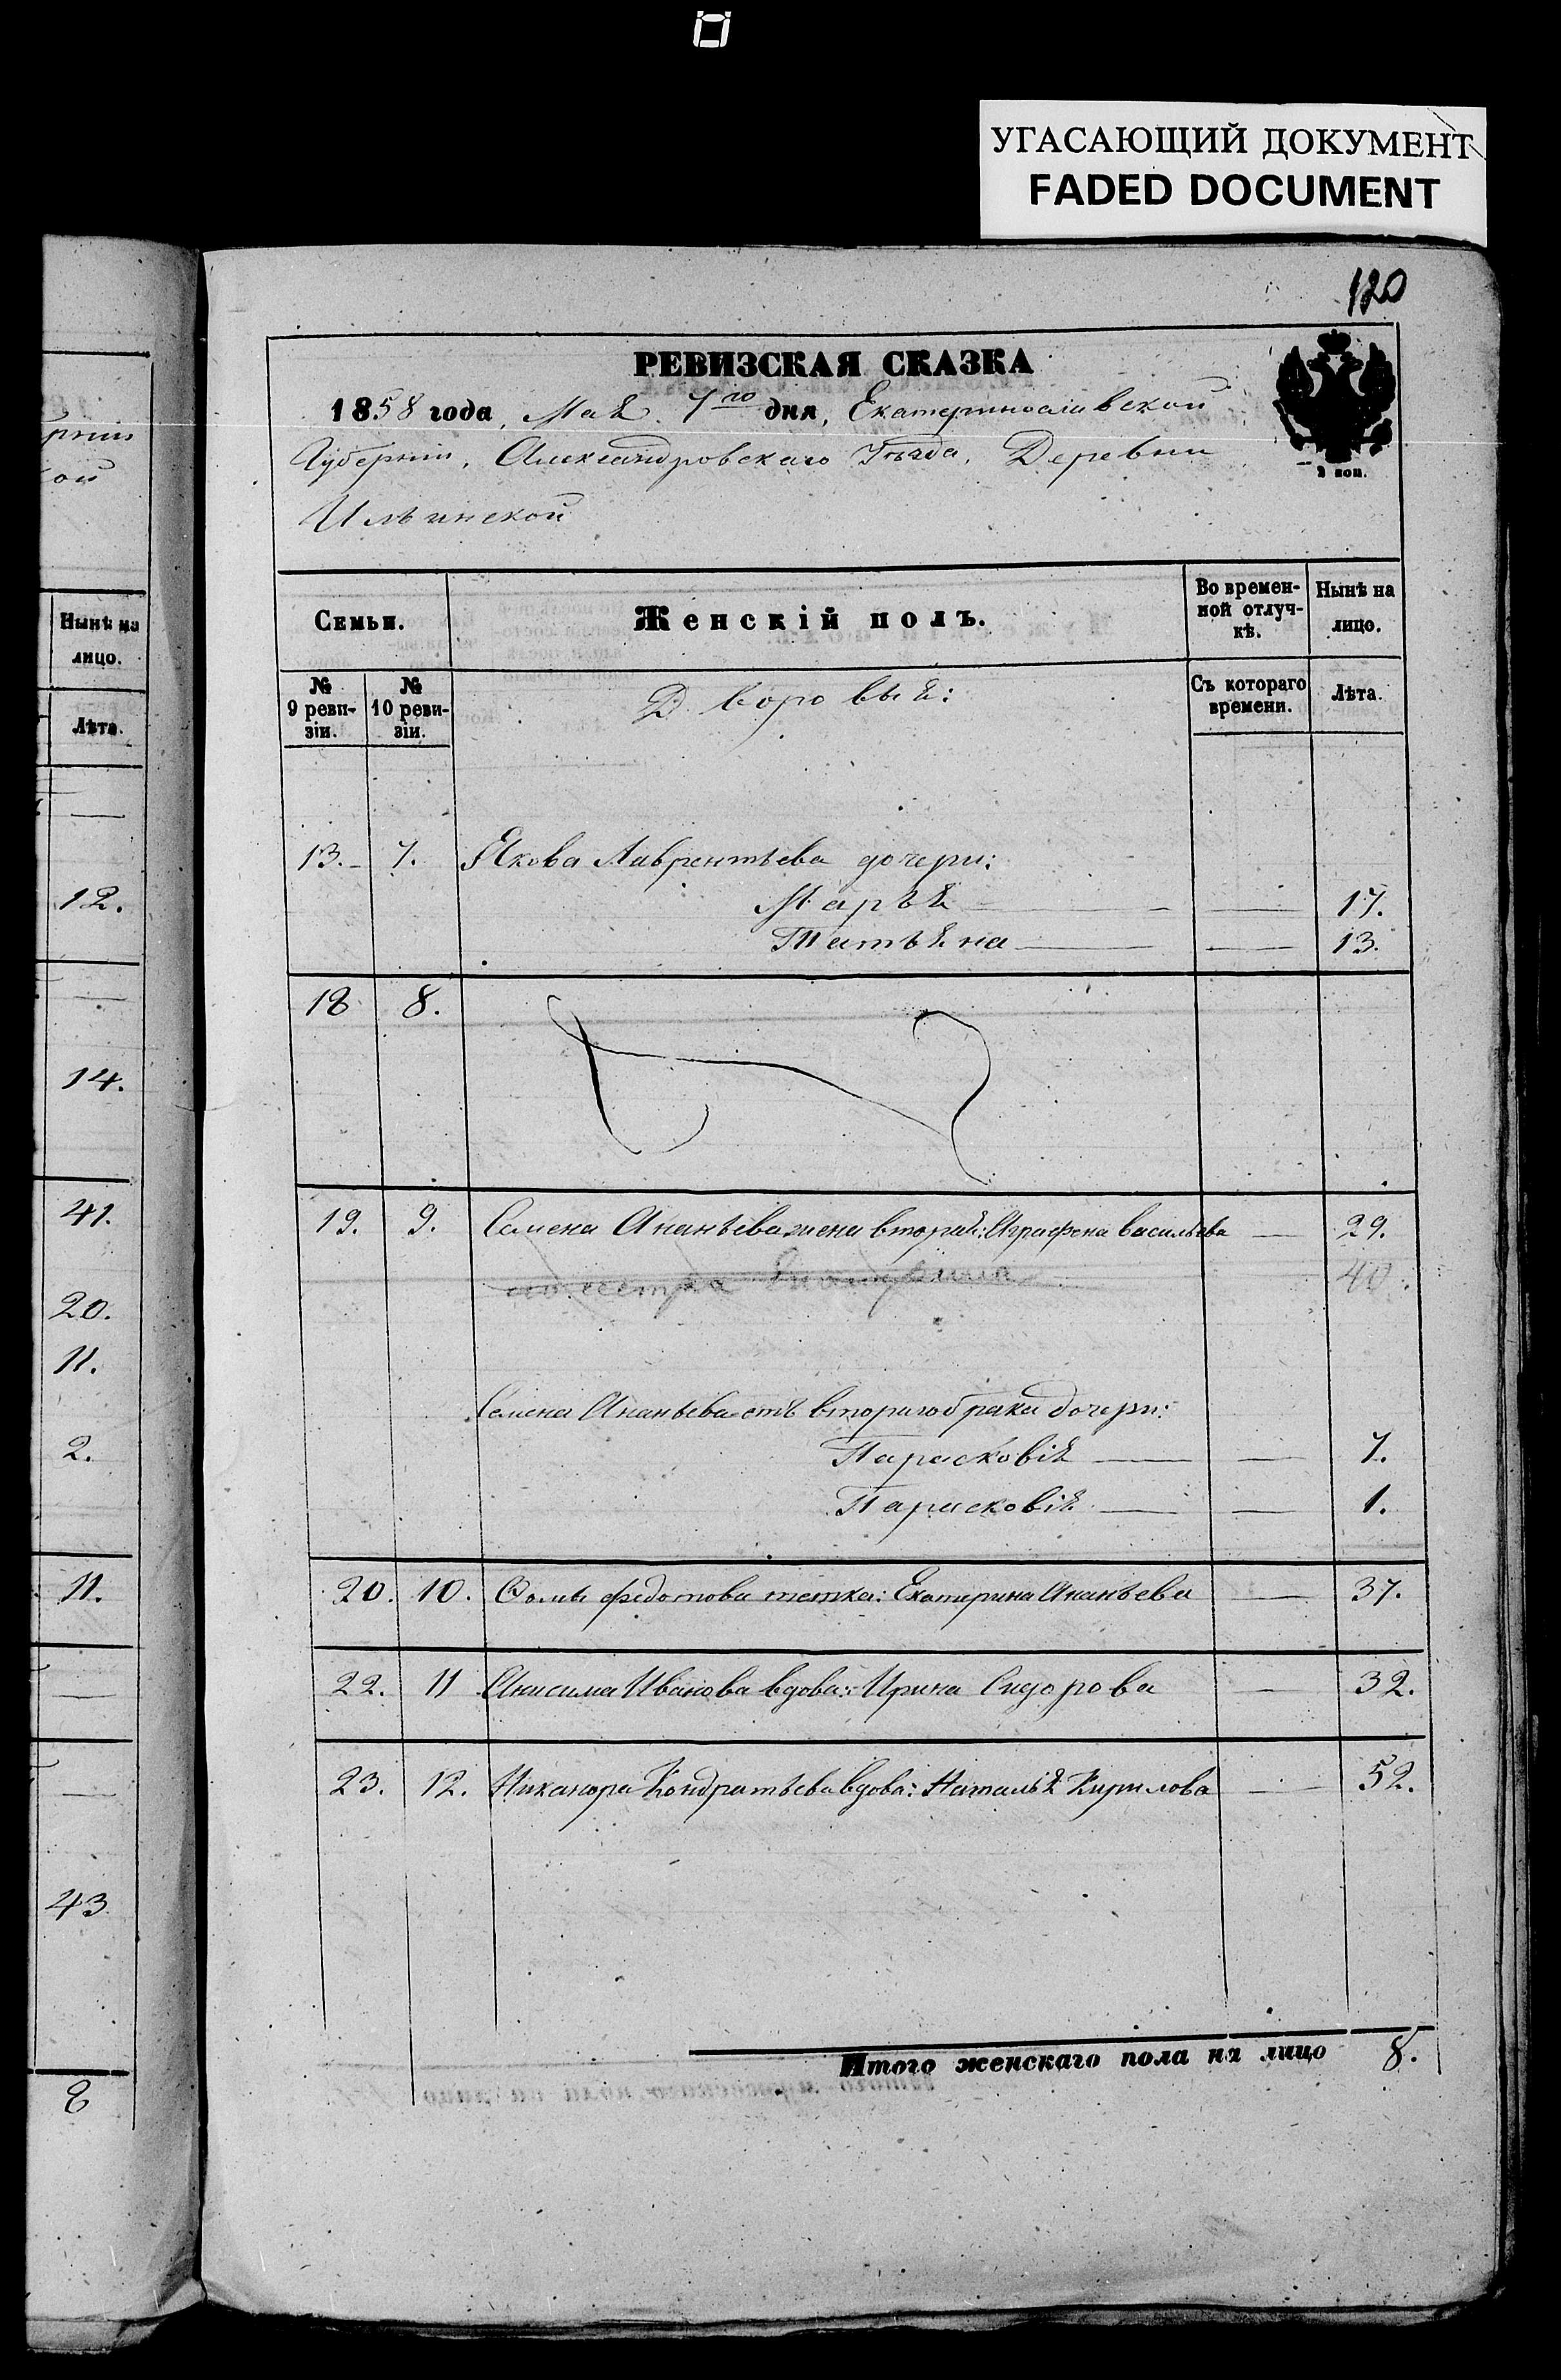 УГАСАЮЩИЙ ДОКУМЕНТ
FADED DOCUMENT
120
РЕВИЗСКАЯ СКАЗКА
1858 года, Мая 7го дня, Екатеринославской
Губерніи, Александровскаго Уѣзда, Деревни
Ильинской
2 коп.
Семьи. Женскій полъ. Во времен-ной отлуч-кѣ. Нынѣ на лицо.
№ 9 реви-зіи. № 10 реви-зіи. Дворовыя: Съ котораго времени. Лѣта.
13. 7. Якова Лаврентьева дочери:
Марья 17.
Татьяна 13.
18 8.
19. 9. Семена Ананьева жена вторая: Аграфена васильева 29.
его сестра 40.
Семена Ананьева отъ втораго брака дочери:
Парасковія 7.
Парасковія 1.
20. 10. Фомы федотова тетка: Екатерина Ананьева 37.
22. 11 Анисима Иванова вдова: Ирина Сидорова 32.
23. 12. Никанора Кондратьева вдова: Наталья Кирилова 52.
Итого женскаго пола на лицо 8.
рніи
ой
Нынѣ на
лицо.
Лѣта.
12.
14.
41.
20.
11.
2.
11.
43
8